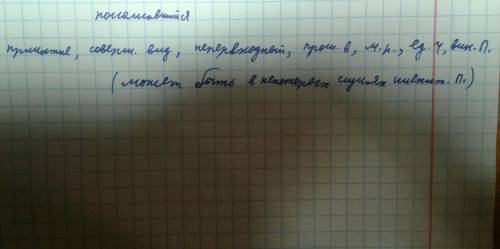 причастие, соверш. вид, непереходный, прош. в, м. р., ед. ч, вин. П.
(может быть в некоторых случаях именит. П.)